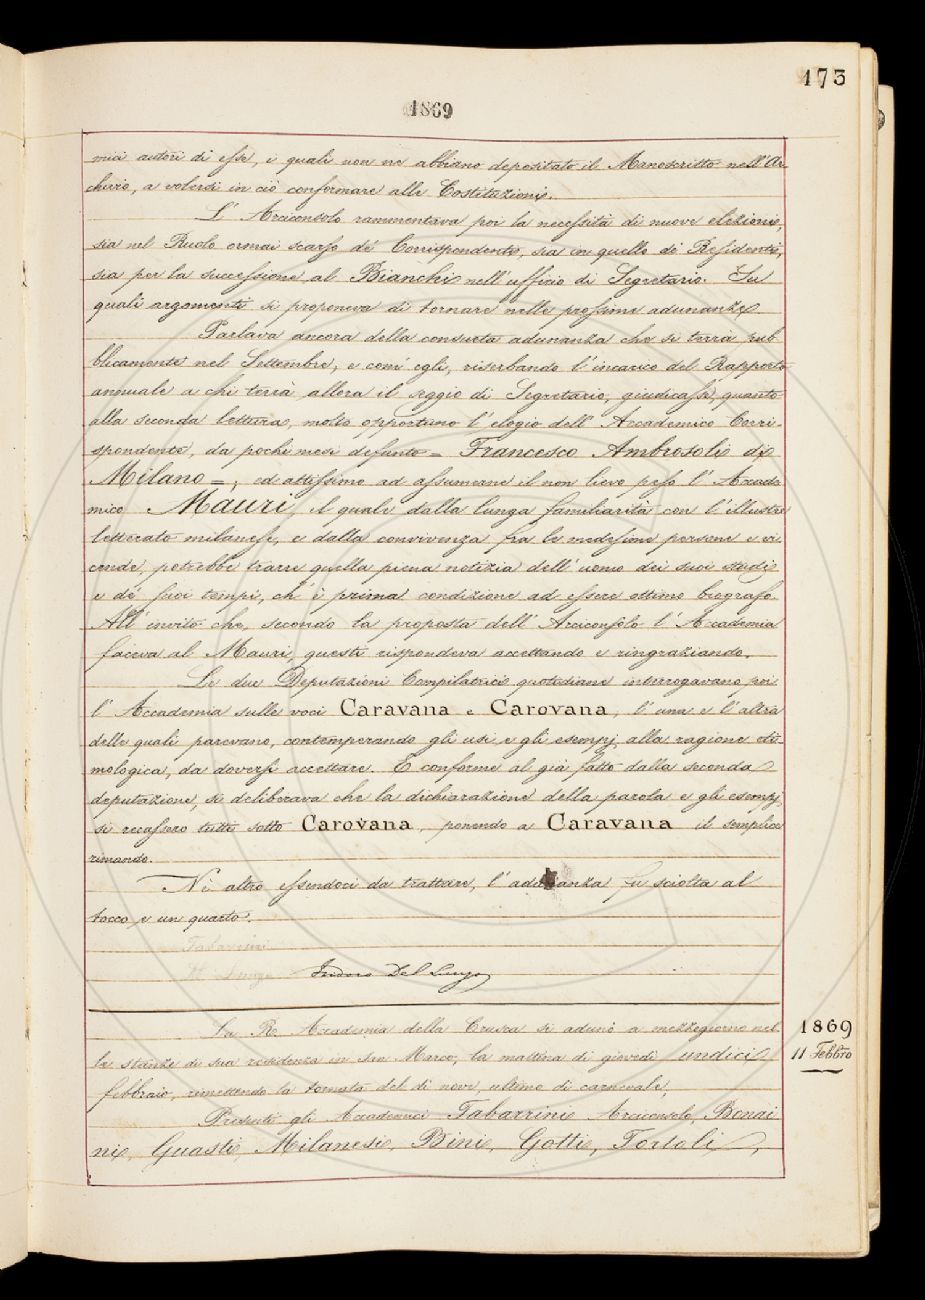 173
1869
mici autori di esse, i quali non ne abbiano depositato il Manoscritto nell'Ar
chivio, a volersi in ciò conformare alle Costituzioni.
L'Arciconsolo rammentava poi la necessità di nuove elezioni,
sia nel Ruolo ormai scarso de' Corrispondenti, sia in quello de' Residenti,
sia per la successione al Bianchi nell'ufficio di Segretario. Su
quali argomenti si proponeva di tornare nelle prossime adunanze.
Parlava ancora della consueta adunanza che si terrà pub
blicamente nel Settembre, e com'egli, riserbando l'incarico del Rapporto
annuale a chi terrà allora il seggio di Segretario, giudicasse, quanto
alla seconda lettura, molto opportuno l'elogio dell'Accademico Corri-
spondente, da pochi mesi defunto = Francesco Ambrosoli di
Milano =, ed attissimo ad assumerne il non lieve peso l'Accade
mico Mauri, il quale dalla lunga familiarità con l'illustre
letterato milanese, e dalla convivenza fra le medesime persone e vi
cende, potrebbe trarre quella piena notizia dell'uomo dei suoi studi
e de' suoi tempi, ch'è prima condizione ad essere ottimo biografo.
All'invito che, secondo la proposta dell'Arciconsolo l'Accademia
faceva al Mauri, questi rispondeva accettando e ringraziando.
Le due Deputazioni Compilatrici quotidiane interrogavano poi
l'Accademia sulle voci Caravana e Carovana, l'una e l'altra
delle quali parevano, contemperando gli usi e gli esempj alla ragione eti
mologica, da doversi accettare. E conforme al già fatto dalla seconda
deputazione, si deliberava che la dichiarazione della parola e gli esempj
si recassero tutti sotto Carovana, ponendo a Caravana il semplice
rimando.
Nè altro essendoci da trattare, l'adunanza fu sciolta al
tocco e un quarto.
Tabarrini
Isidoro Del Lungo
La R. Accademia della Crusca si adunò a mezzogiorno nel
le stanze di sua residenza in San Marco, la mattina di giovedì undici
febbraio, rimettendo la tornata del dì nove, ultimo di carnevale,
Presenti gli Accademici Tabarrini Arciconsolo, Bonai
ni, Guasti, Milanesi, Bini, Gotti, Tortoli,
1869
11 Febbro